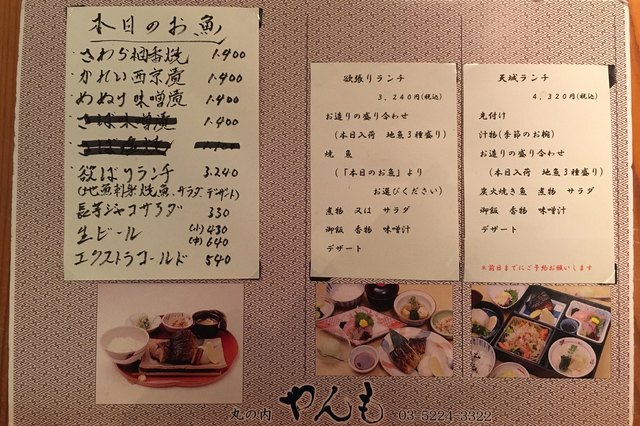 本日のお魚
さわら柚香焼 1.400
かれい西京漬 1.400
めぬけ味噌漬 1.400
さば木噌漬 1.400
欲ばりランチ 3.240
(地魚刺身 焼魚、サラダ デザート)
長芋ジャコサラダ 330
生ビール (小) 430
(中) 640
エクストラコールド 540
欲張りランチ
3,240円(税込)
お造りの盛り合わせ
(本日入荷 地魚3種盛り)
焼 魚
(「本日のお魚」より
お選びください)
煮物 又は サラダ
御飯 香物 味噌汁
デザート
天城ランチ
4,320円(税込)
先付け
汁物(季節のお椀)
お造りの盛り合わせ
(本日入荷 地魚3種盛り)
炭火焼き魚 煮物 サラダ
御飯 香物 味噌汁
デザート
*前日までにご予約お願いします
丸の内 やんも 03-5224-3322